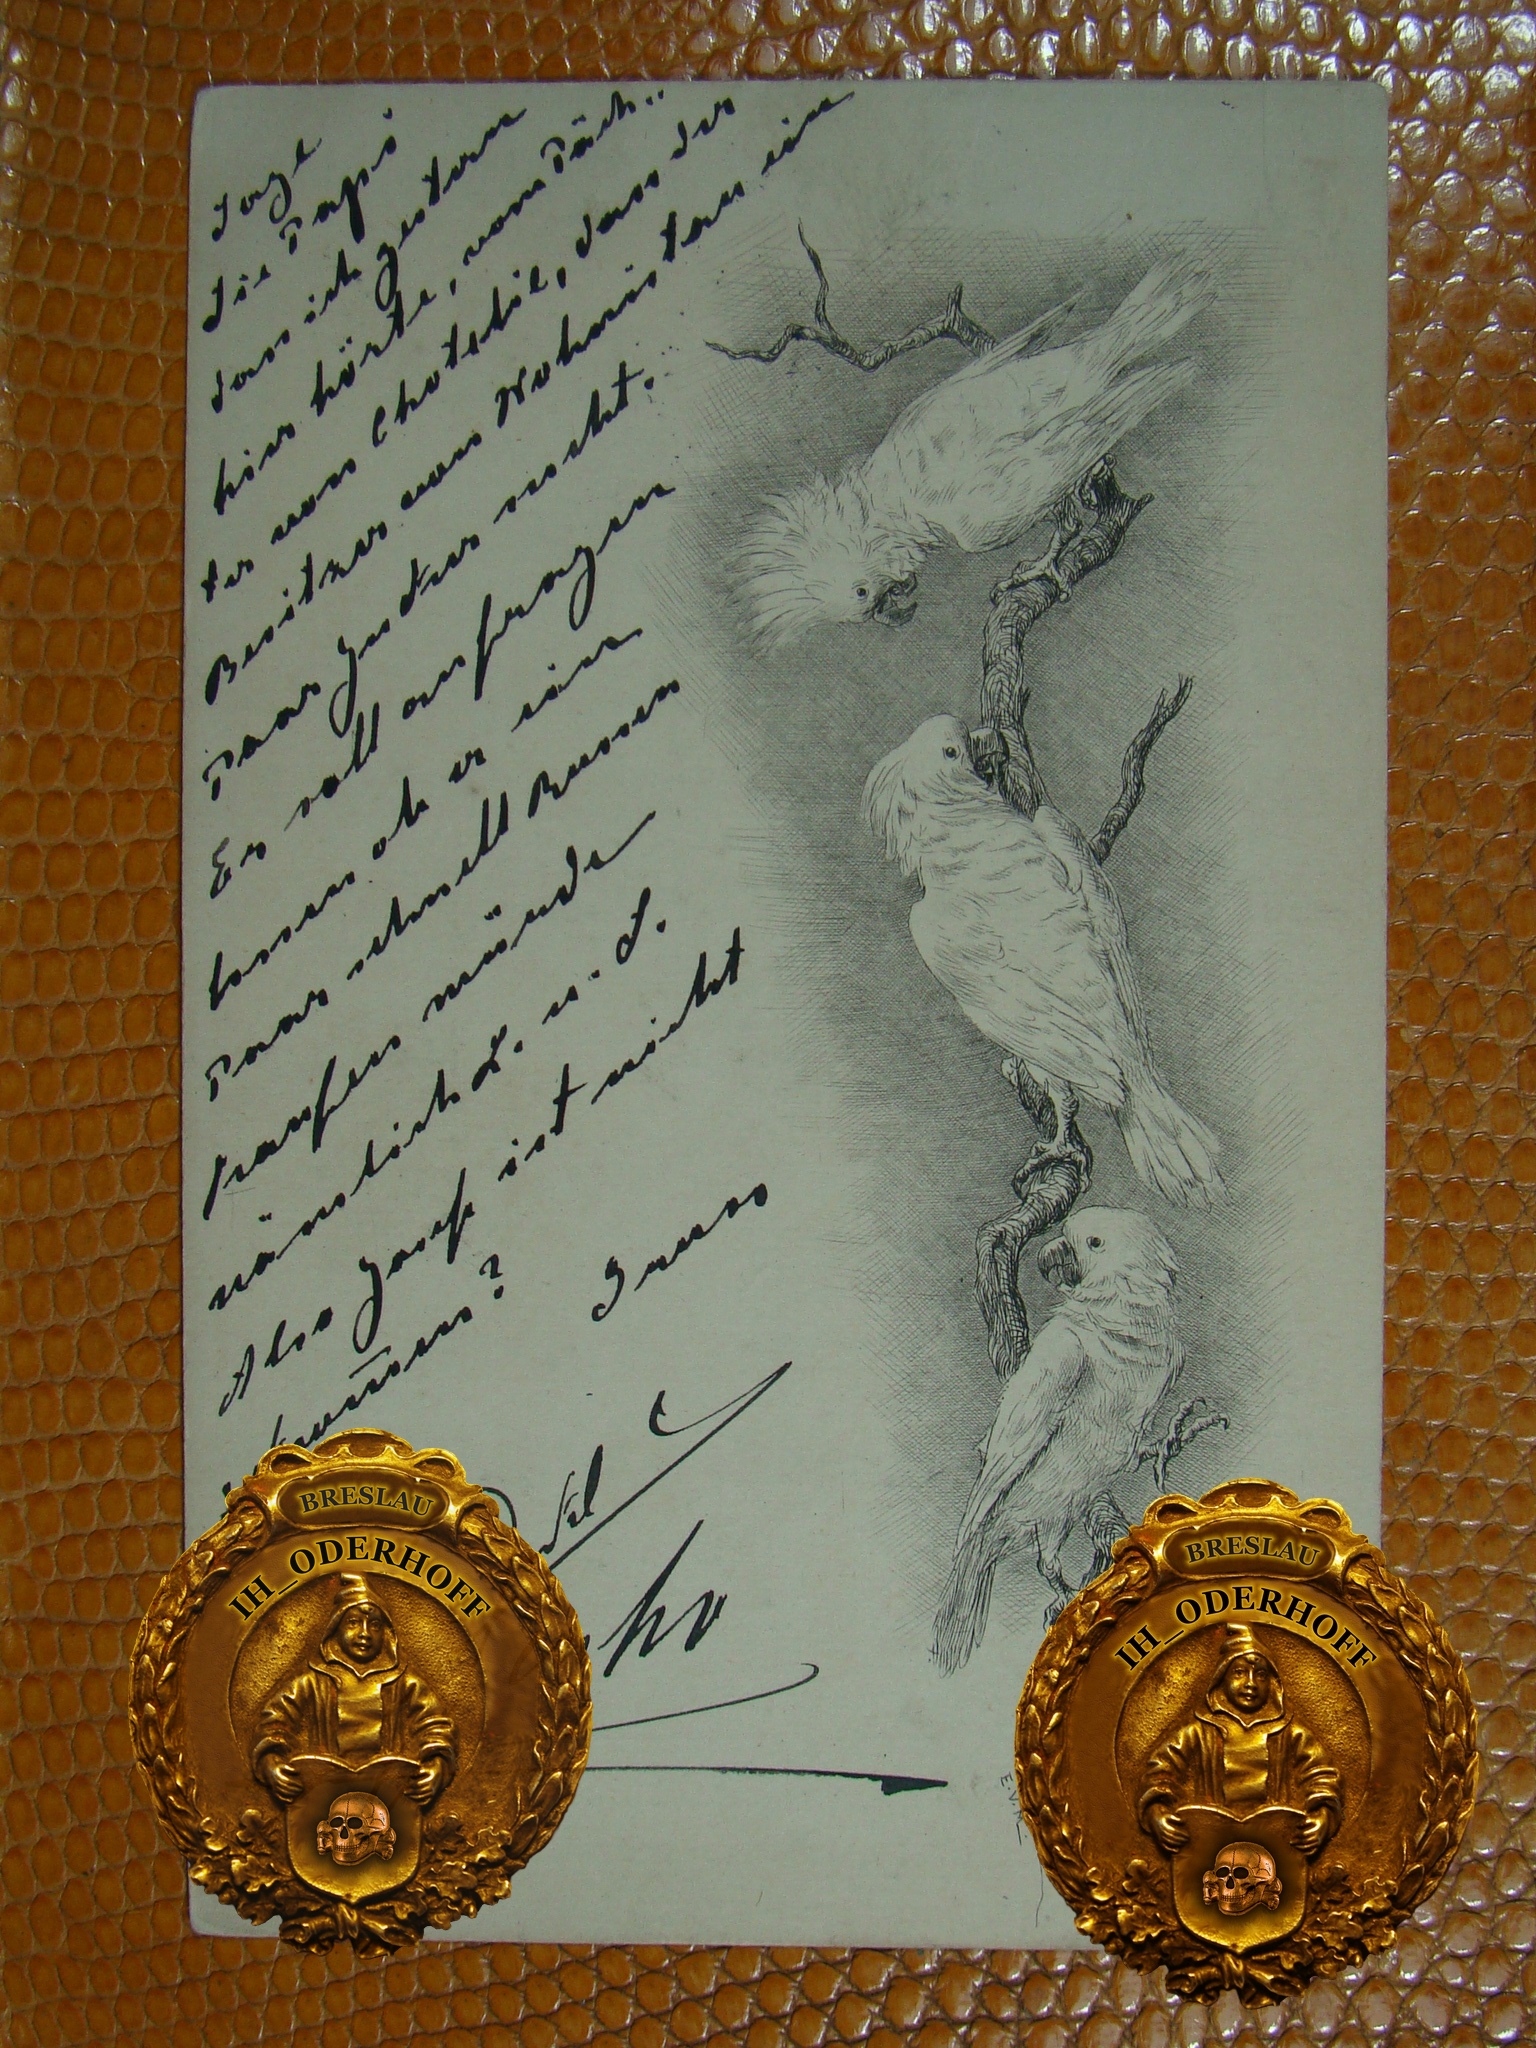 Sage
Die Papi
dass ich gestern
hier hörte, vom Päch-
ter von Chotebil, dass der
Besitzer von Wohnistan ein
Paar Jucker sucht.
Er soll anfragen
lassen ob er ein
Paar schnell Russen
kaufen würde
nämlich L. u. L.
Also Josef ist nicht
kommen?
Gruss
E.V.
BRESLAU
IH_ODERHOFF
BRESLAU
IH_ODERHOFF